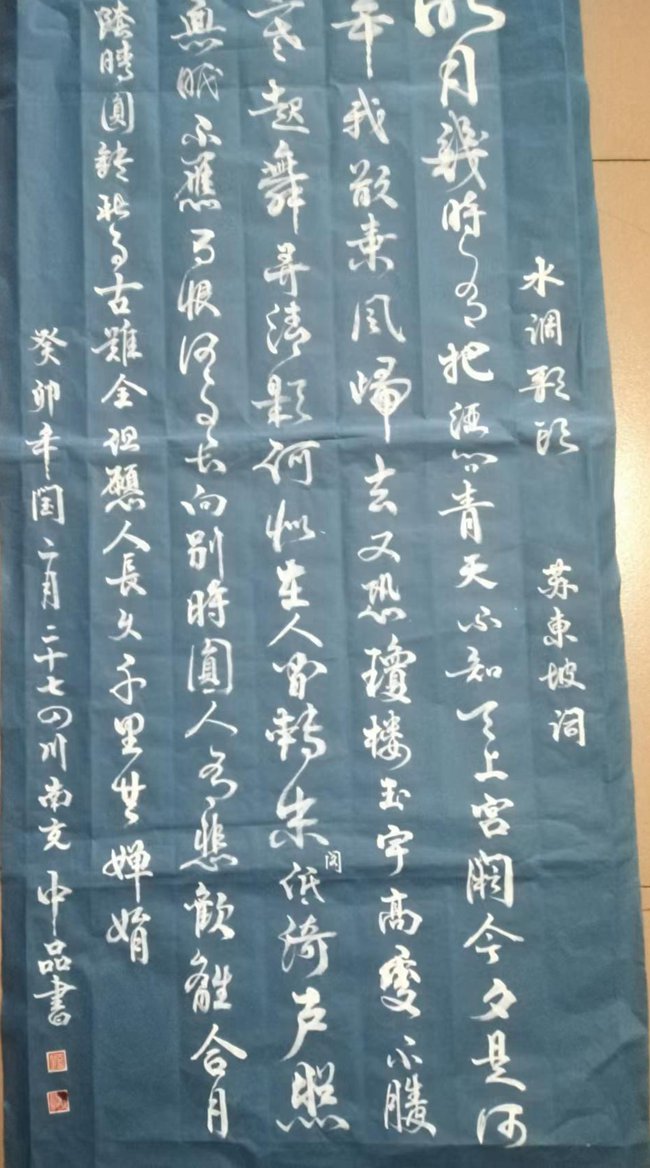 水调歌头
苏東坡词
明月幾時有把酒问青天不知天上宫阙今夕是何
年我欲乘風歸去又恐瓊楼玉宇高處不勝
寒起舞弄清影何似在人间轉朱阁低绮户照
無眠不應有恨何事長向别時圓人有悲歡離合月
陰晴圓缺此事古難全但願人長久千里共婵娟
癸卯年闰二月二十七四川南充中品書